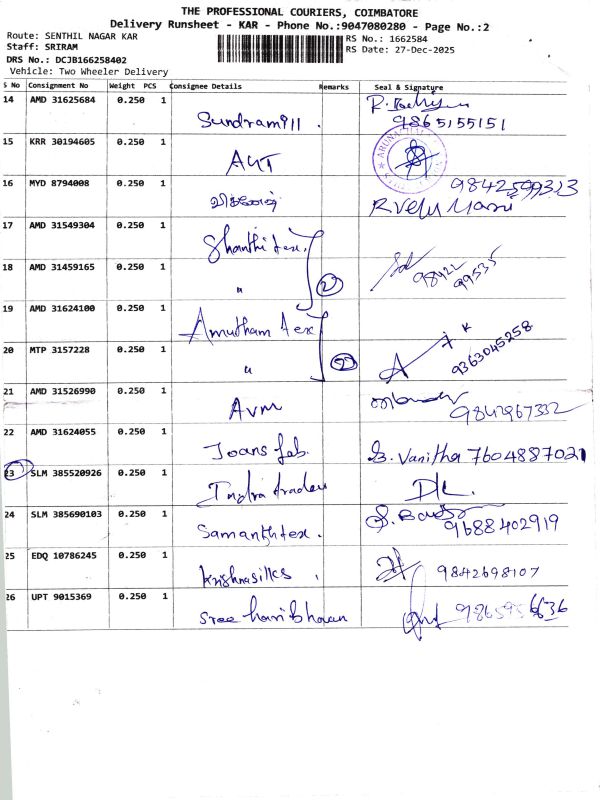 THE PROFESSIONAL COURIERS, COIMBATORE
Delivery Runsheet - KAR - Phone No.:9047080280 - Page No.:2
Route: SENTHIL NAGAR KAR
RS No.: 1662584
Staff: SRIRAM
RS Date: 27-Dec-2025
DRS No.: DCJB166258402
Vehicle: Two Wheeler Delivery
S No Consignment No Weight PCS Consignee Details Remarks Seal & Signature
14 AMD 31625684 0.250 1
9865155151
15 KRR 30194605 0.250 1
16 MYD 8794008 0.250 1
17 AMD 31549304 0.250 1 Shanthi tex.
18 AMD 31459165 0.250 1 "
19 AMD 31624100 0.250 1 Amutham tex
20 MTP 3157228 0.250 1 " 9363045258
21 AMD 31526990 0.250 1 AVM 9842967332
22 AMD 31624055 0.250 1 Joans fab. B. Vanitha 7604887021
23 SLM 385520926 0.250 1 Indra traders
24 SLM 385690103 0.250 1 Samanthtex. 9688402919
25 EDQ 10786245 0.250 1 Krishnasilks 9842698107
26 UPT 9015369 0.250 1 Sree haribhavan